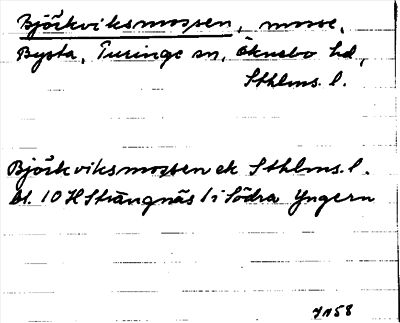 Björkviksmossen, mosse,
Bysta, Turinge sn, Öknebo hd,
Sthlms. l.
Björkviksmossen ek Sthlms. l.
bl. 10 H Strängnäs / i Södra Yngern
1958